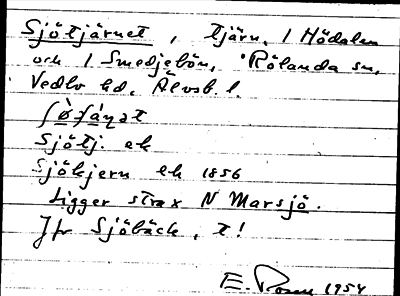 Sjötjärnet, tjärn, i Hödalen
och i Smedjebön, Rölanda sn,
Vedbo hd. Älvsb. l.
Sjötj. ek
Sjökjern ek 1856
Ligger strax N Marsjö.
Jfr Sjöbäck, t!
E. 1954